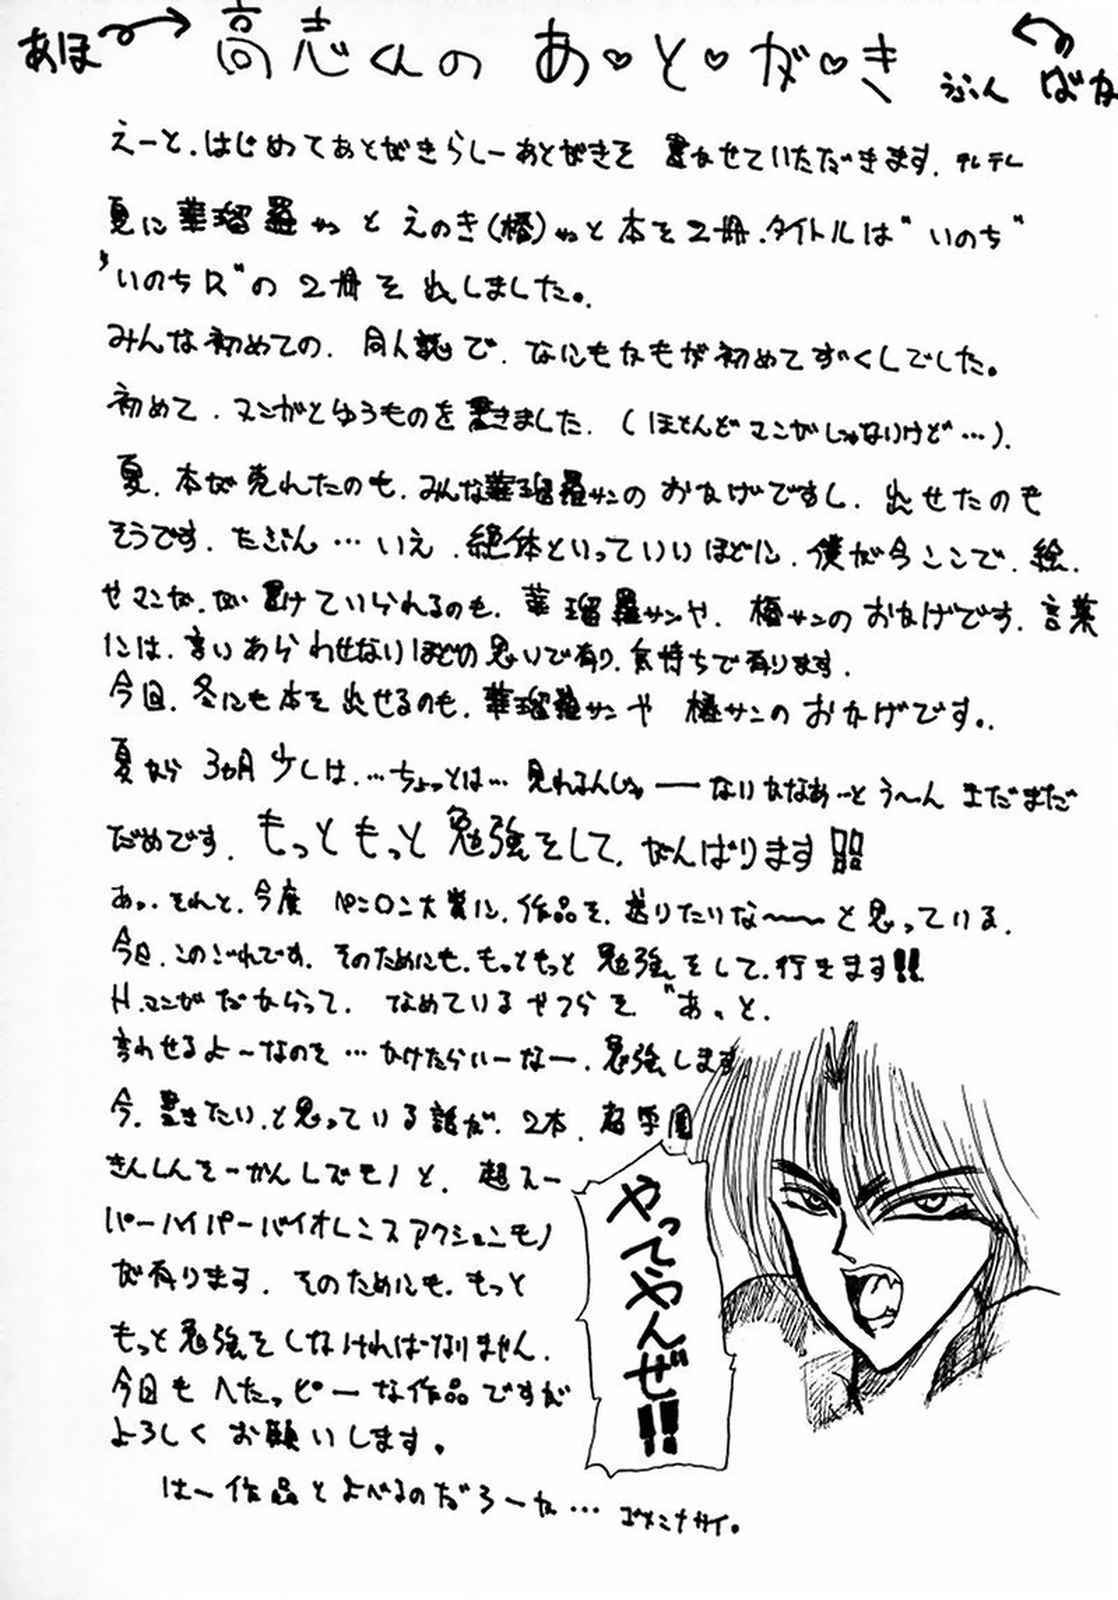 あほ 高志くんの あ・と・が・き ばか
えーと、はじめてあとがきらしーあとがきを 書かせていただきます。テレテレ
夏に華瑠羅サンと えのき(椿)サンと 本を2冊、タイトルは"いのち"
"いのちR"の 2冊を 出しました。
みんな初めての、同人誌で、なにもかもが初めてずくしでした。
初めて、マンガとゆうものを書きました。(ほとんどマンガじゃないけど…)。
夏、本が売れたのも、みんな華瑠羅サンのおかげですし、出せたのも
そうです。たぶん…いえ、絶体といっていいほどに、僕が今ここで、絵、
やマンガ、が書けていられるのも、華瑠羅サンや、椿サンのおかげです。言葉
には、言いあらわせないほどの思いで有り、気持ちで有ります。
今回、冬にも本を出せるのも、華瑠羅サンや 椿サンのおかげです。
夏から 3ヵ月 少しは、…ちょっとは…見れるんじゃーないかなあ…とう〜ん まだまだ
だめです。もっともっと勉強をして、がんばります!!
あっ、それと、今度 ペンロン大賞に、作品を、送りたいな〜〜と思っている。
今日、このごろです。そのためにも、もっともっと 勉強をして、行きます!!
H.マンガだからって、なめているやつらを"あっと、
言わせるよーなのを…かけたらいーなー、勉強します。
今、書きたい、と思っている話が、2本、超学園
きんしんそーかんレズモノと、超スー
パーハイパーバイオレンスアクションモノ
が有ります。そのためにも、もっと
もっと勉強をしなければなりません。
今回もへたっピーな作品ですが
よろしくお願いします。
はー作品とよべるのだろーか…ゴメンナサイ。
やってやんぜ!!